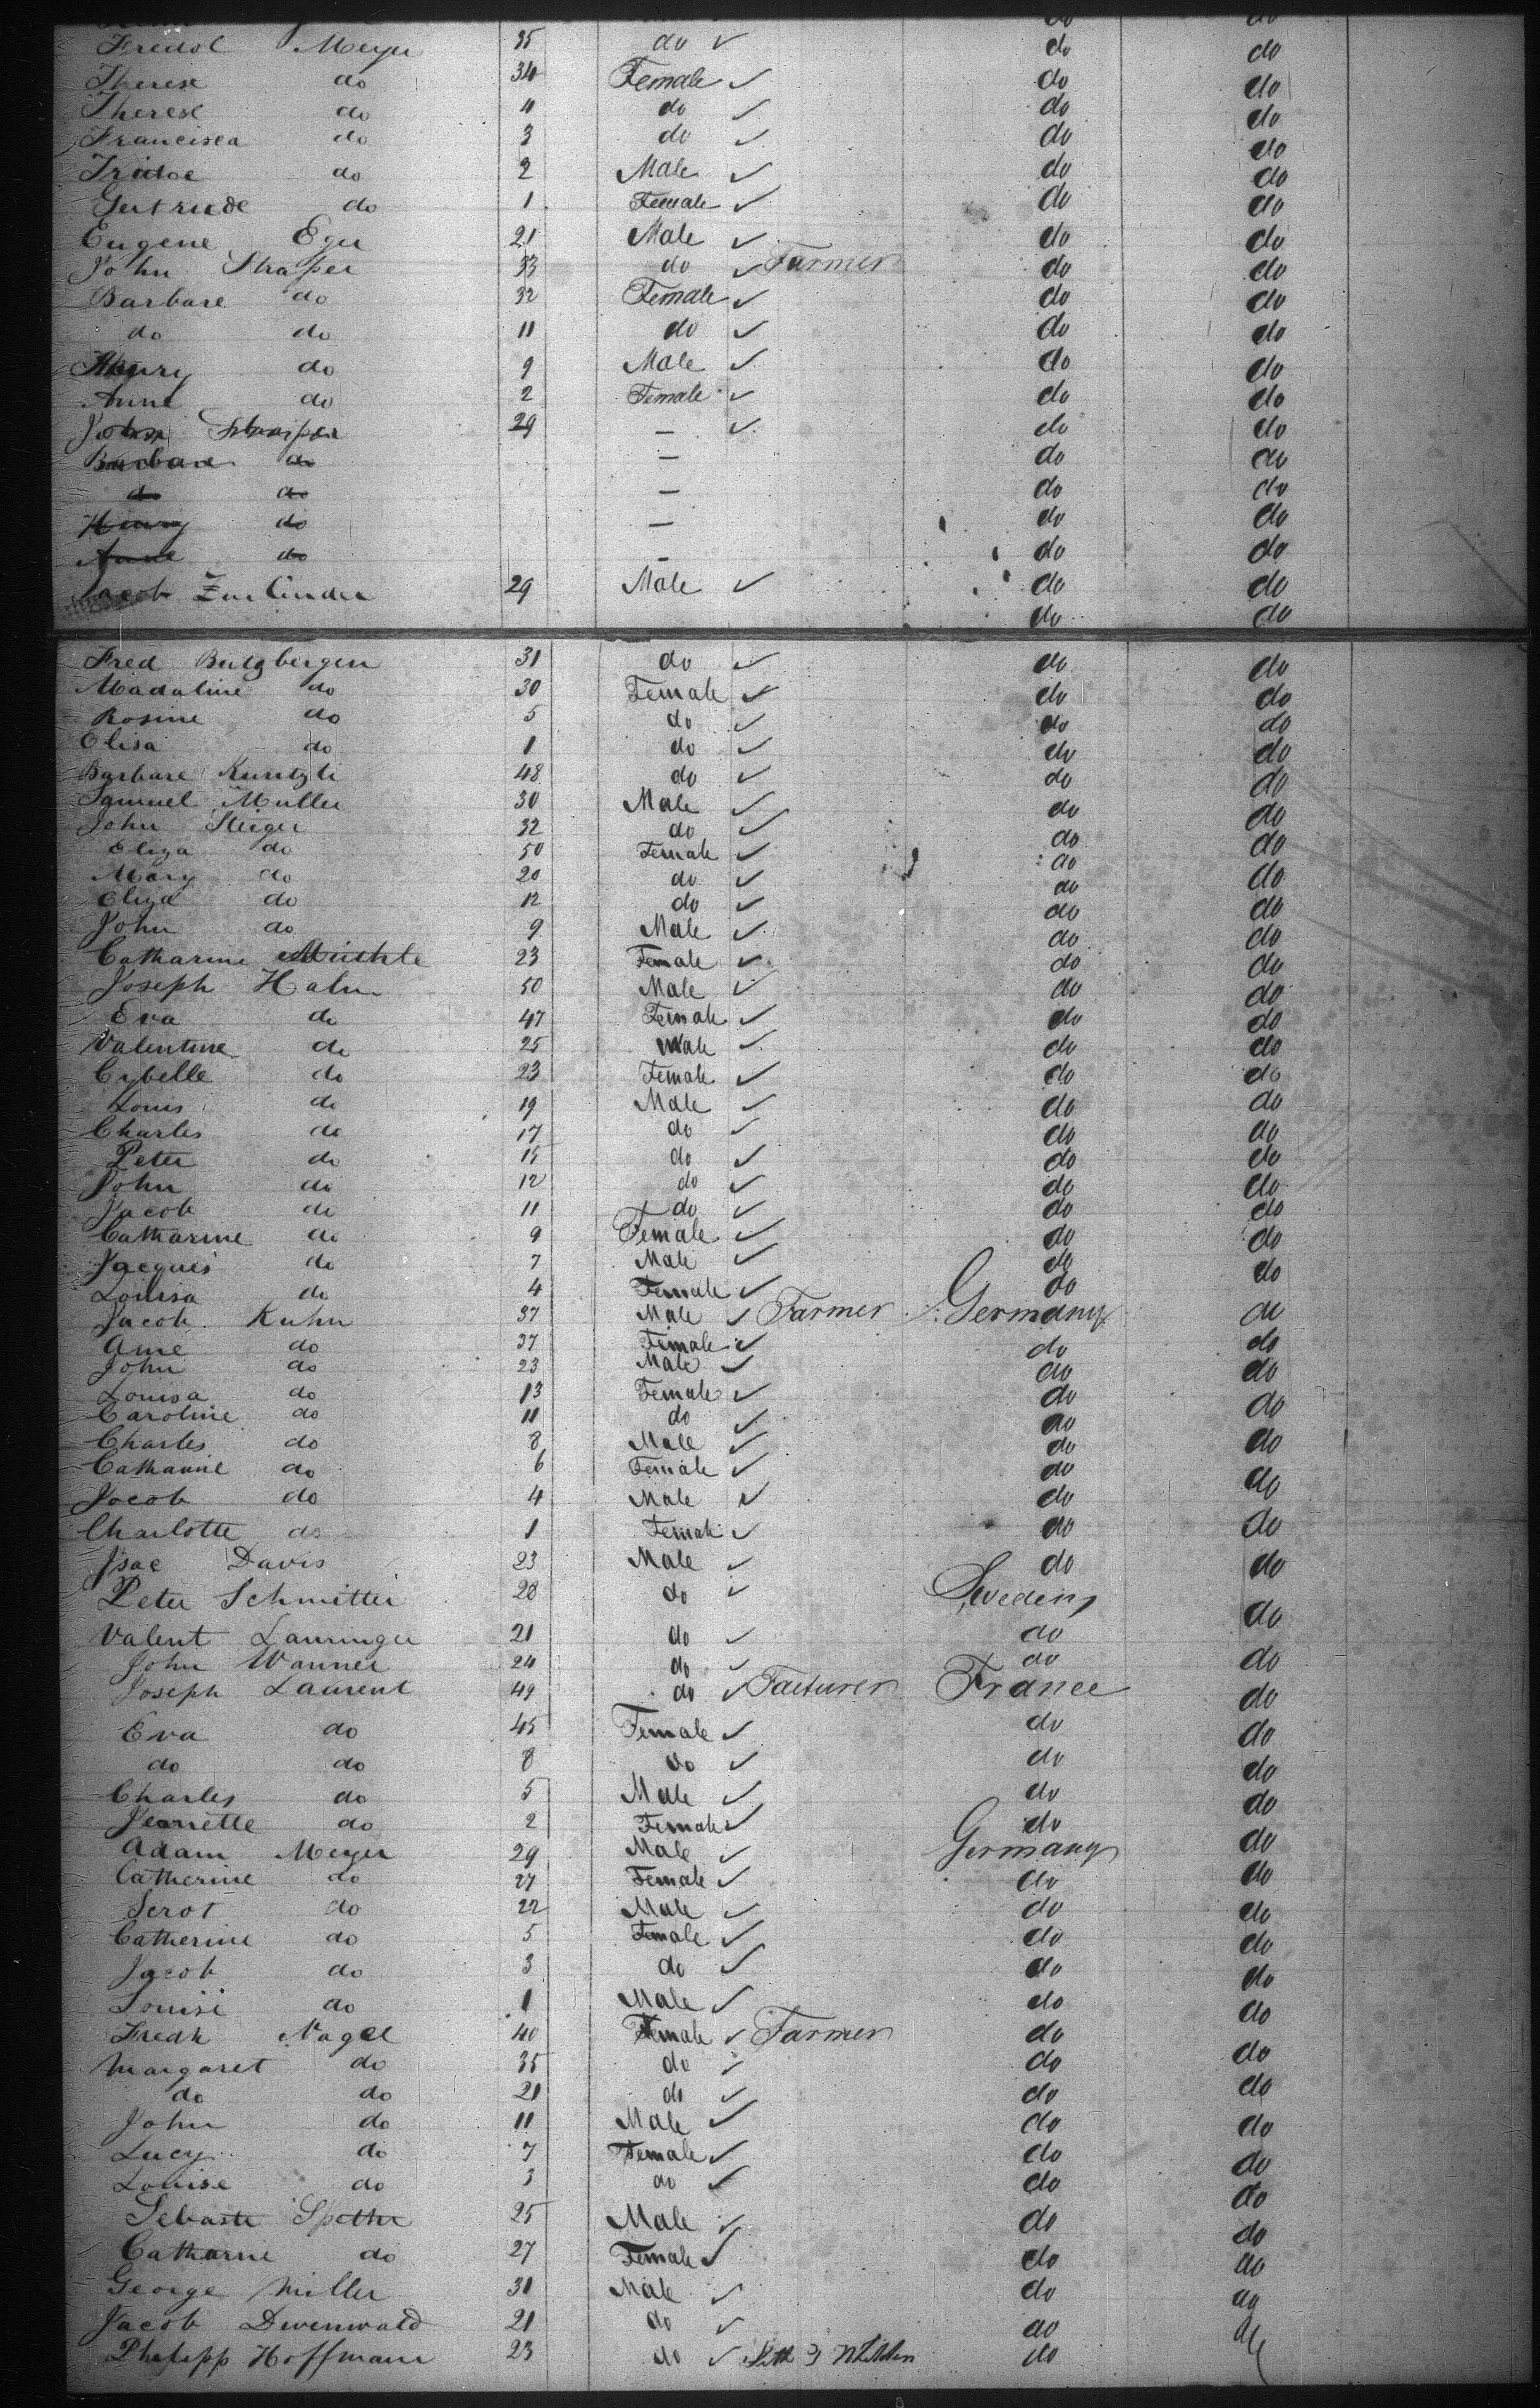 do do
Fredol Meyer 35 do ✓ do do
Therese do 34 Female ✓ do do
Therese do 4 do ✓ do do
Francisca do 3 do ✓ do do
do 2 Male ✓ do do
Gertrude do 1 Female ✓ do do
Eugene Eger 21 Male ✓ do do
John Straper 33 do ✓ Farmer do do
Barbare do 32 Female ✓ do do
do do 11 do ✓ do do
Henry do 9 Male ✓ do do
Anne do 2 Female ✓ do do
John 29 — ✓ do do
Barbare do — do do
do do — do do
Henry do — do do
Anne do — do do
Jacob Zurlinder 29 Male ✓ do do
do do
Fred Butzbergen 31 do ✓ do do
Madaline do 30 Female ✓ do do
Rosine do 5 do ✓ do do
Elisa do 1 do ✓ do do
Barbare Kuntzli 48 do ✓ do do
Samuel Muller 30 Male ✓ do do
John Steiger 32 do ✓ do do
Eliza do 50 Female ✓ do do
Mary do 20 do ✓ do do
Eliza do 12 do ✓ do do
John do 9 Male ✓ do do
Catharine 23 Female ✓ do do
Joseph Hahn 50 Male ✓ do do
Eva do 47 Female ✓ do do
Valentine do 25 Male ✓ do do
Cybelle do 23 Female ✓ do do
Louis do 19 Male ✓ do do
Charles do 17 do ✓ do do
Peter do 15 do ✓ do do
John do 12 do ✓ do do
Jacob do 11 do ✓ do do
Catharine do 9 Female ✓ do do
Jacques do 7 Male ✓ do do
Louisa do 4 Female ✓ do
Jacob Kuhn 37 Male ✓ Farmer Germany do
Ame do 37 Female ✓ do do
John do 23 Male ✓ do do
Louisa do 13 Female ✓ do do
Caroline do 11 do ✓ do
Charles do 8 Male ✓ do do
Catharine do 6 Female ✓ do do
Jacob do 4 Male ✓ do
Charlotte do 1 Female ✓ do do
Isac Davis 23 Male ✓ do do
Peter Schmitter 28 do ✓ Sweden do
Valent Lauringer 21 do ✓ do
John Wanner 24 do ✓ do do
Joseph Laurent 49 do ✓ Facturer France do
Eva do 45 Female ✓ do do
do do 8 do ✓ do do
Charles do 5 Male ✓ do do
Jeanette do 2 Female ✓ do do
Adam Meyer 29 Male ✓ Germany
Catherine do 27 Female ✓ do do
Serot do 22 Male ✓ do do
Catherine do 5 Female ✓ do do
Jacob do 3 do ✓ do do
Louise do 1 Male ✓ do do
Fredk Nagel 40 Female ✓ Farmer do do
Margaret do 35 do ✓ do do
do do 21 do ✓ do do
John do 11 Male ✓ do do
Lucy do 7 Female ✓ do do
Louise do 3 do ✓ do do
Sebaste Spethe 25 Male ✓ do do
Catharne do 27 Female ✓ do do
George Miller 31 Male ✓ do do
Jacob Divenwald 21 do ✓ do do
Philipp Hoffmann 23 do ✓ do